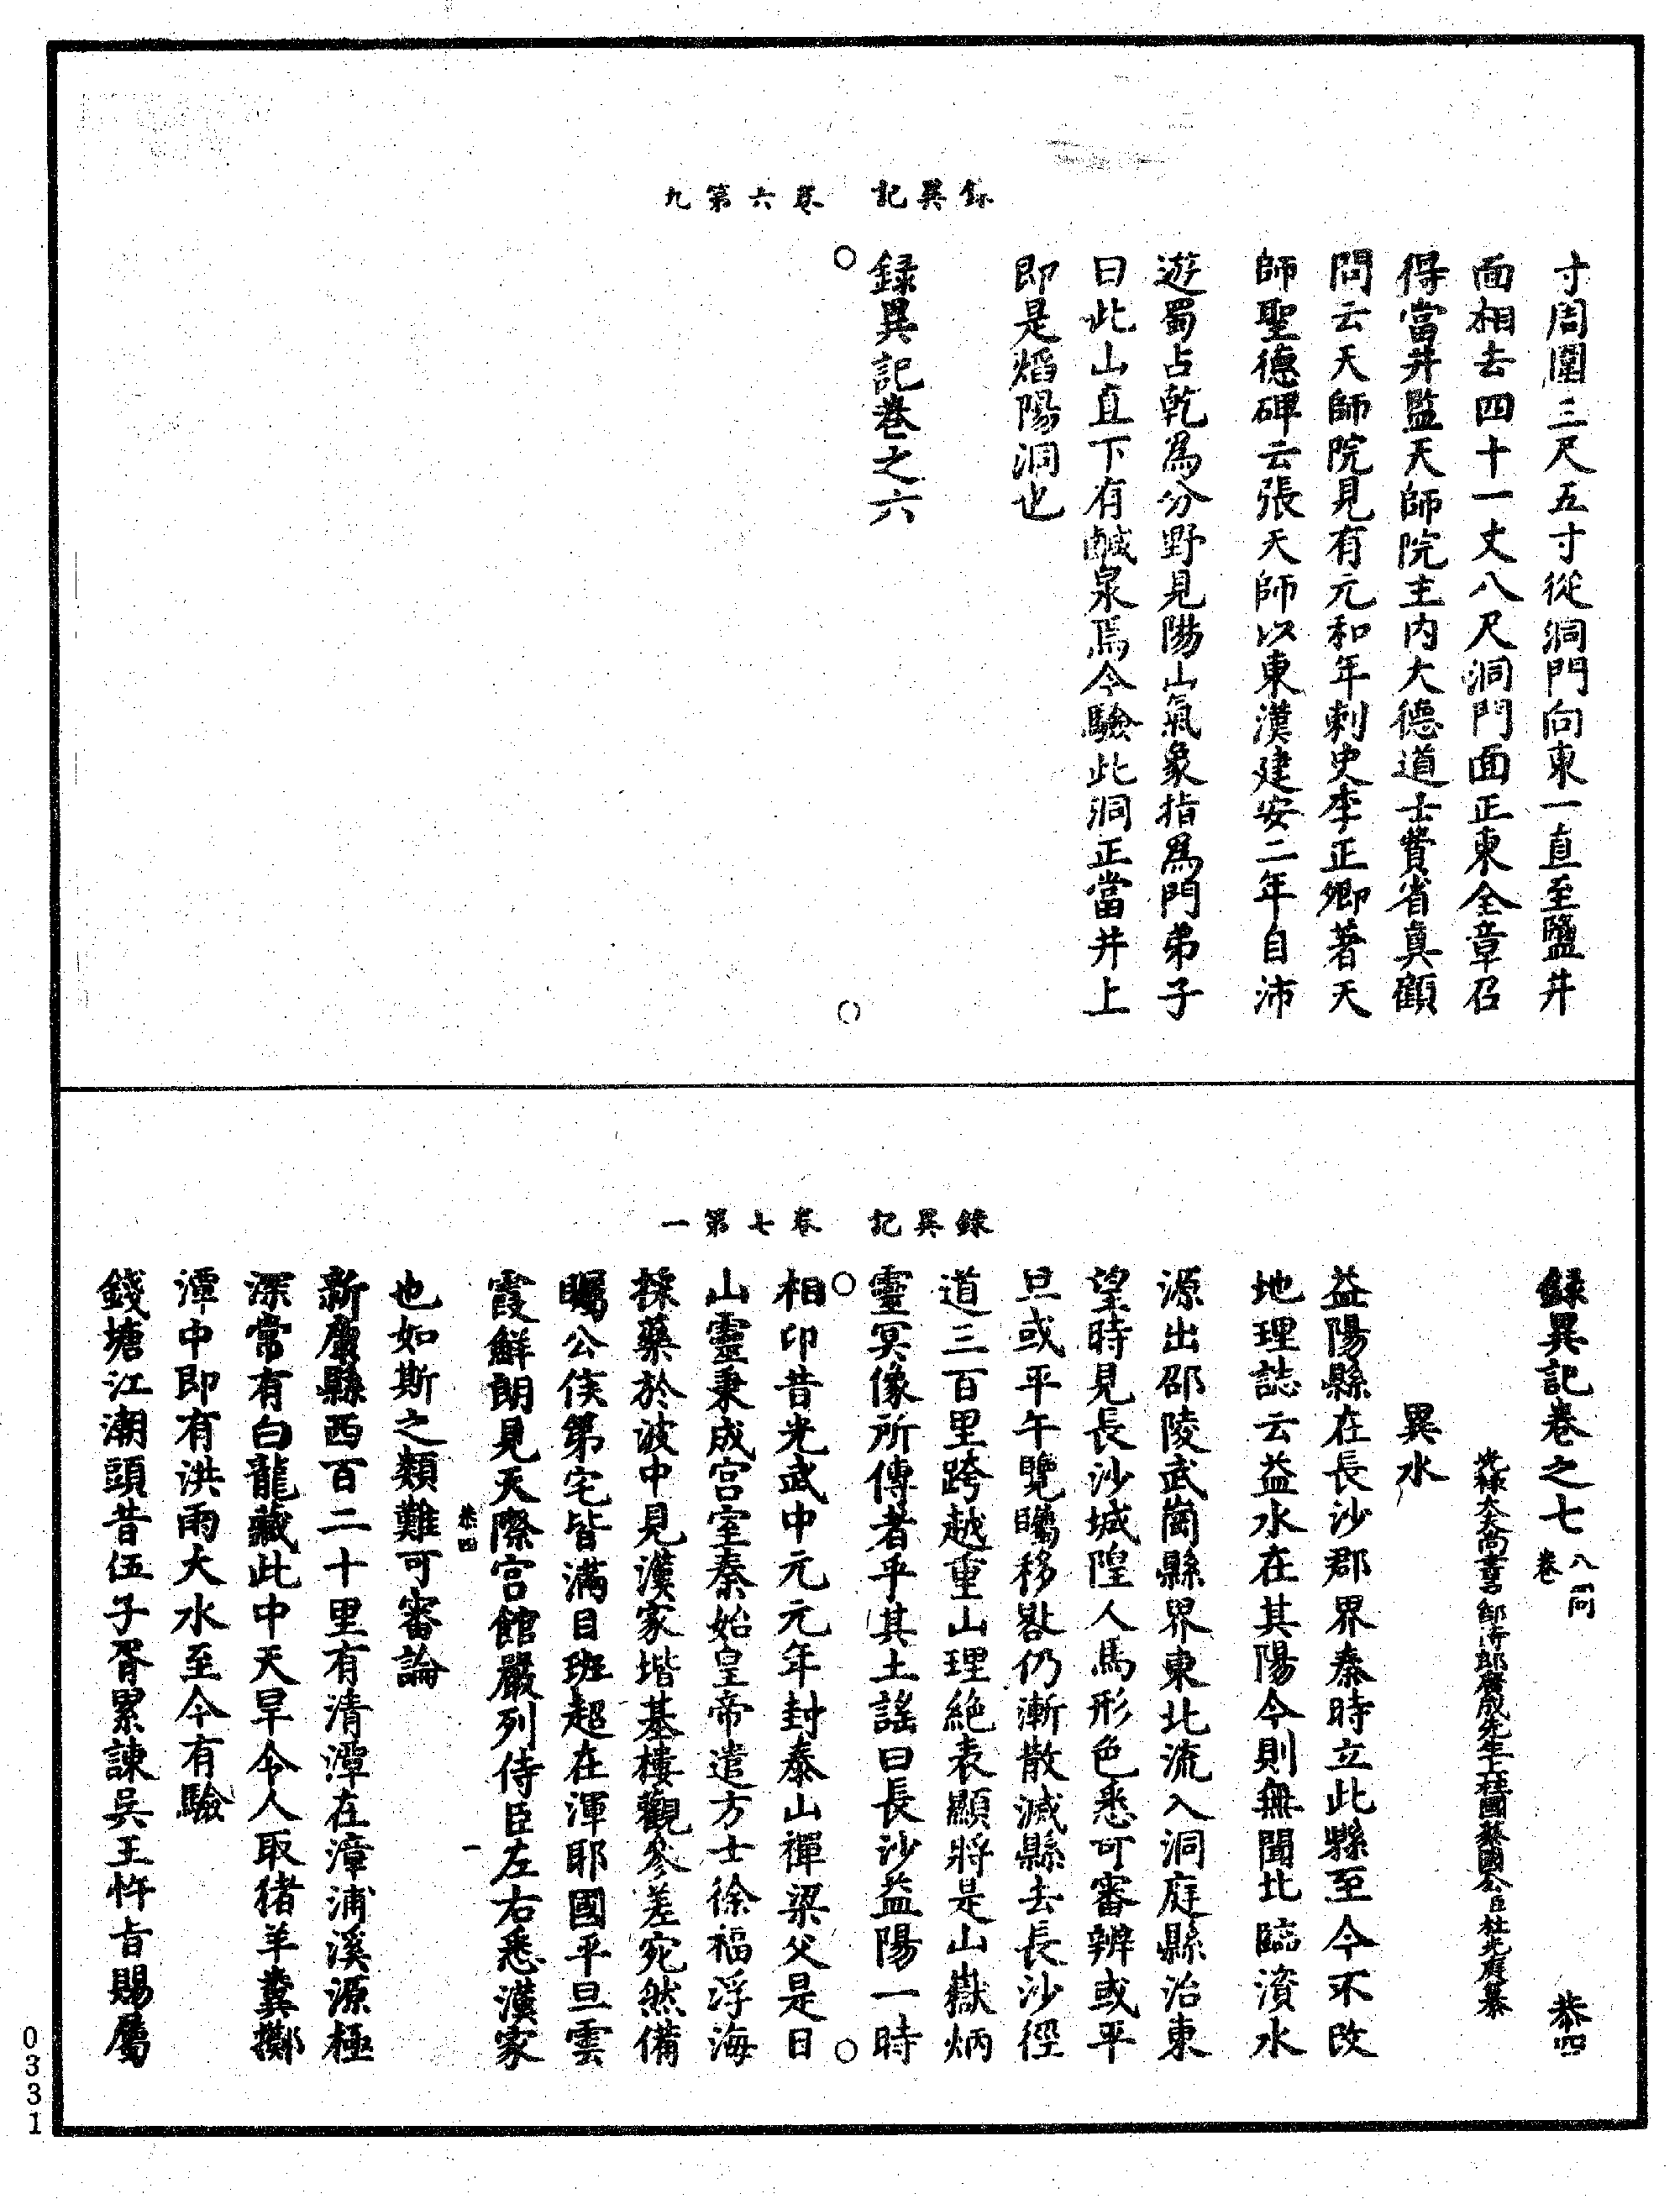 錄異記　卷六第九
寸周圍三尺五寸從洞門向東一直至鹽井
面相去四十一丈八尺洞門面正東全章召
得當井監天師院主內大德道士費省真顧
問云天師院見有元和年刺史李正卿著天
師聖德碑云張天師以東漢建安二年自沛
遊蜀占乾為分野見陽山氣象指為門弟子
曰此山直下有鹹泉焉今驗此洞正當井上
即是焰陽洞也
錄異記卷之六
錄異記　卷七第一
錄異記卷之七　八同卷　恭四
光祿大夫尚書部侍郎廣成先生上柱國蔡國公臣杜光庭纂
異水
益陽縣在長沙郡界秦時立此縣至今不改
地理誌云益水在其陽今則無聞北臨資水
源出邵陵武崗縣界東北流入洞庭縣治東
望時見長沙城隍人馬形色悉可審辨或平
旦或平午覽矚移晷仍漸散滅縣去長沙徑
道三百里跨越重山理絕表顯將是山嶽炳
靈冥像所傳者乎其土謠曰長沙益陽一時
相印昔光武中元元年封泰山禪梁父是日
山靈秉成宮室秦始皇帝遣方士徐福浮海
採藥於波中見漢家堦基樓觀參差宛然備
矚公侯第宅皆滿目班超在渾耶國平旦雲
霞鮮朗見天際宮館嚴列侍臣左右悉漢家
恭四　一
也如斯之類難可審論
新廣縣西百二十里有清潭在漳浦溪源極
深常有白龍藏此中天旱令人取猪羊糞擲
潭中即有洪雨大水至今有驗
錢塘江潮頭昔伍子胥累諫吳王忤旨賜屬
0331